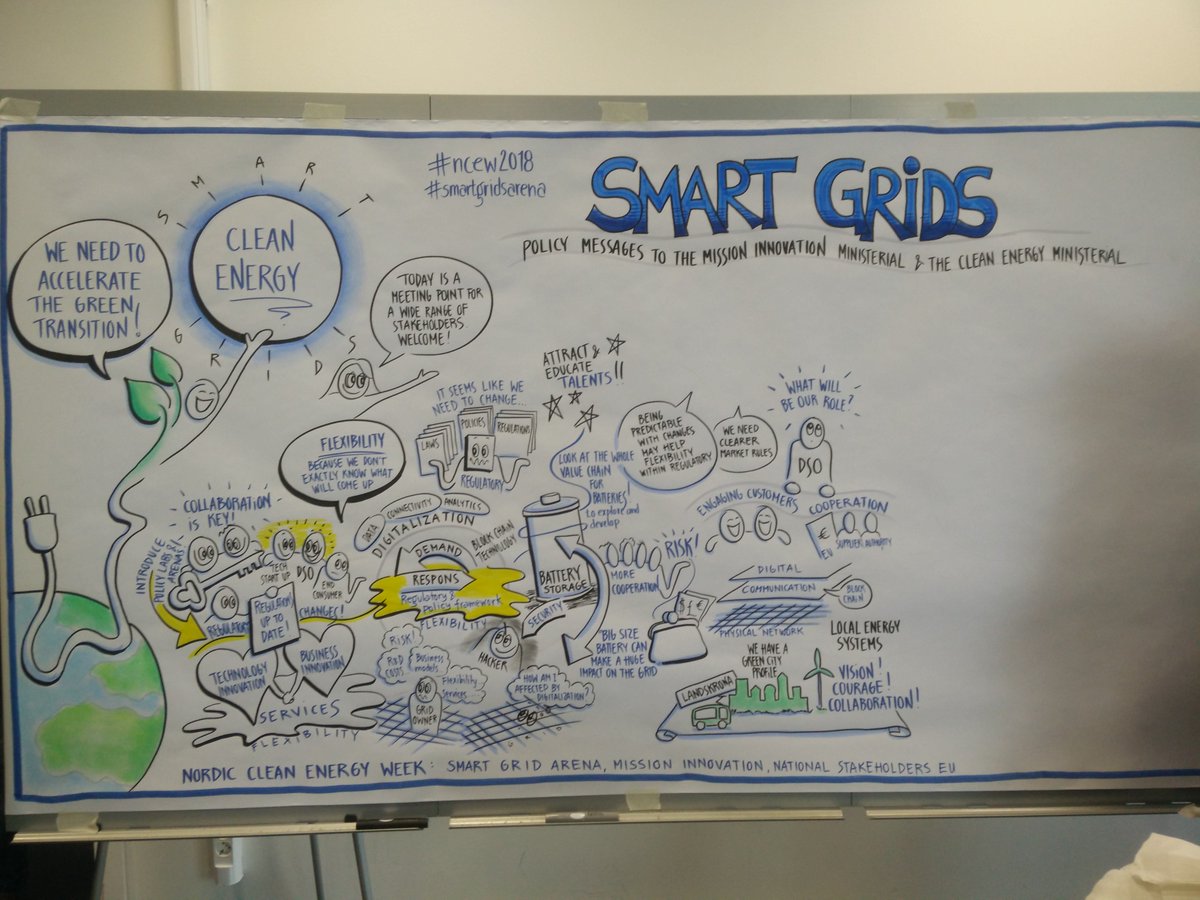 #ncew2018
#smartgridsarena
SMART GRiDS
POLICY MESSAGES TO THE MISSION INNOVATION MINISTERIAL & THE CLEAN ENERGY MINISTERIAL
SMART GRIDS
CLEAN
ENERGY
WE NEED TO
ACCELERATE
THE GREEN
TRANSITION!
TODAY IS A
MEETING POINT FOR
A WIDE RANGE OF
STAKEHOLDERS
WELCOME!
ATTRACT &
EDUCATE
TALENTS!!
IT SEEMS LIKE WE
NEED TO CHANGE...
LAWS
POLICIES
REGULATIONS
REGULATORY
FLEXIBILITY
BECAUSE WE DON'T
EXACTLY KNOW WHAT
WILL COME UP
LOOK AT THE WHOLE
VALUE CHAIN
FOR
BATTERIES!
to explore and
develop
BEING
PREDICTABLE
WITH CHANGES
MAY HELP
FLEXIBILITY
WITHIN REGULATORY
WE NEED
CLEARER
MARKET RULES
WHAT WILL
BE OUR ROLE?
DSO
COLLABORATION
IS KEY!
INTRODUCE
POLICY LABS /
ARENAS
TECH
START UP
DSO
END
CONSUMER
REGULATORY
REGULATION
UP TO
DATE!
CHANGES!
TECHNOLOGY
INNOVATION
BUSINESS
INNOVATION
SERVICES
FLEXIBILITY
DATA
CONNECTIVITY
ANALYTICS
DIGITALIZATION
BLOCK CHAIN
TECHNOLOGY
DEMAND
RESPONS
Regulatory &
Policy framework
FLEXIBILITY
BATTERY
STORAGE
SECURITY
HACKER
RISK!
R&D
COSTS
Business
models
Flexibility
Services
GRID
OWNER
HOW AM I
AFFECTED BY
DIGITALIZATION
GRID
MORE
COOPERATION
RISK!
BIG SIZE
BATTERY CAN
MAKE A HUGE
IMPACT ON THE GRID
$ £ €
ENGAGING CUSTOMERS
COOPERATION
€
EU
SUPPLIER
AUTHORITY
DIGITAL
COMMUNICATION
BLOCK
CHAIN
PHYSICAL NETWORK
LOCAL ENERGY
SYSTEMS
WE HAVE A
GREEN CITY
PROFILE
LANDSKRONA
VISION!
COURAGE!
COLLABORATION!
NORDIC CLEAN ENERGY WEEK: SMART GRID ARENA, MISSION INNOVATION, NATIONAL STAKEHOLDERS EU